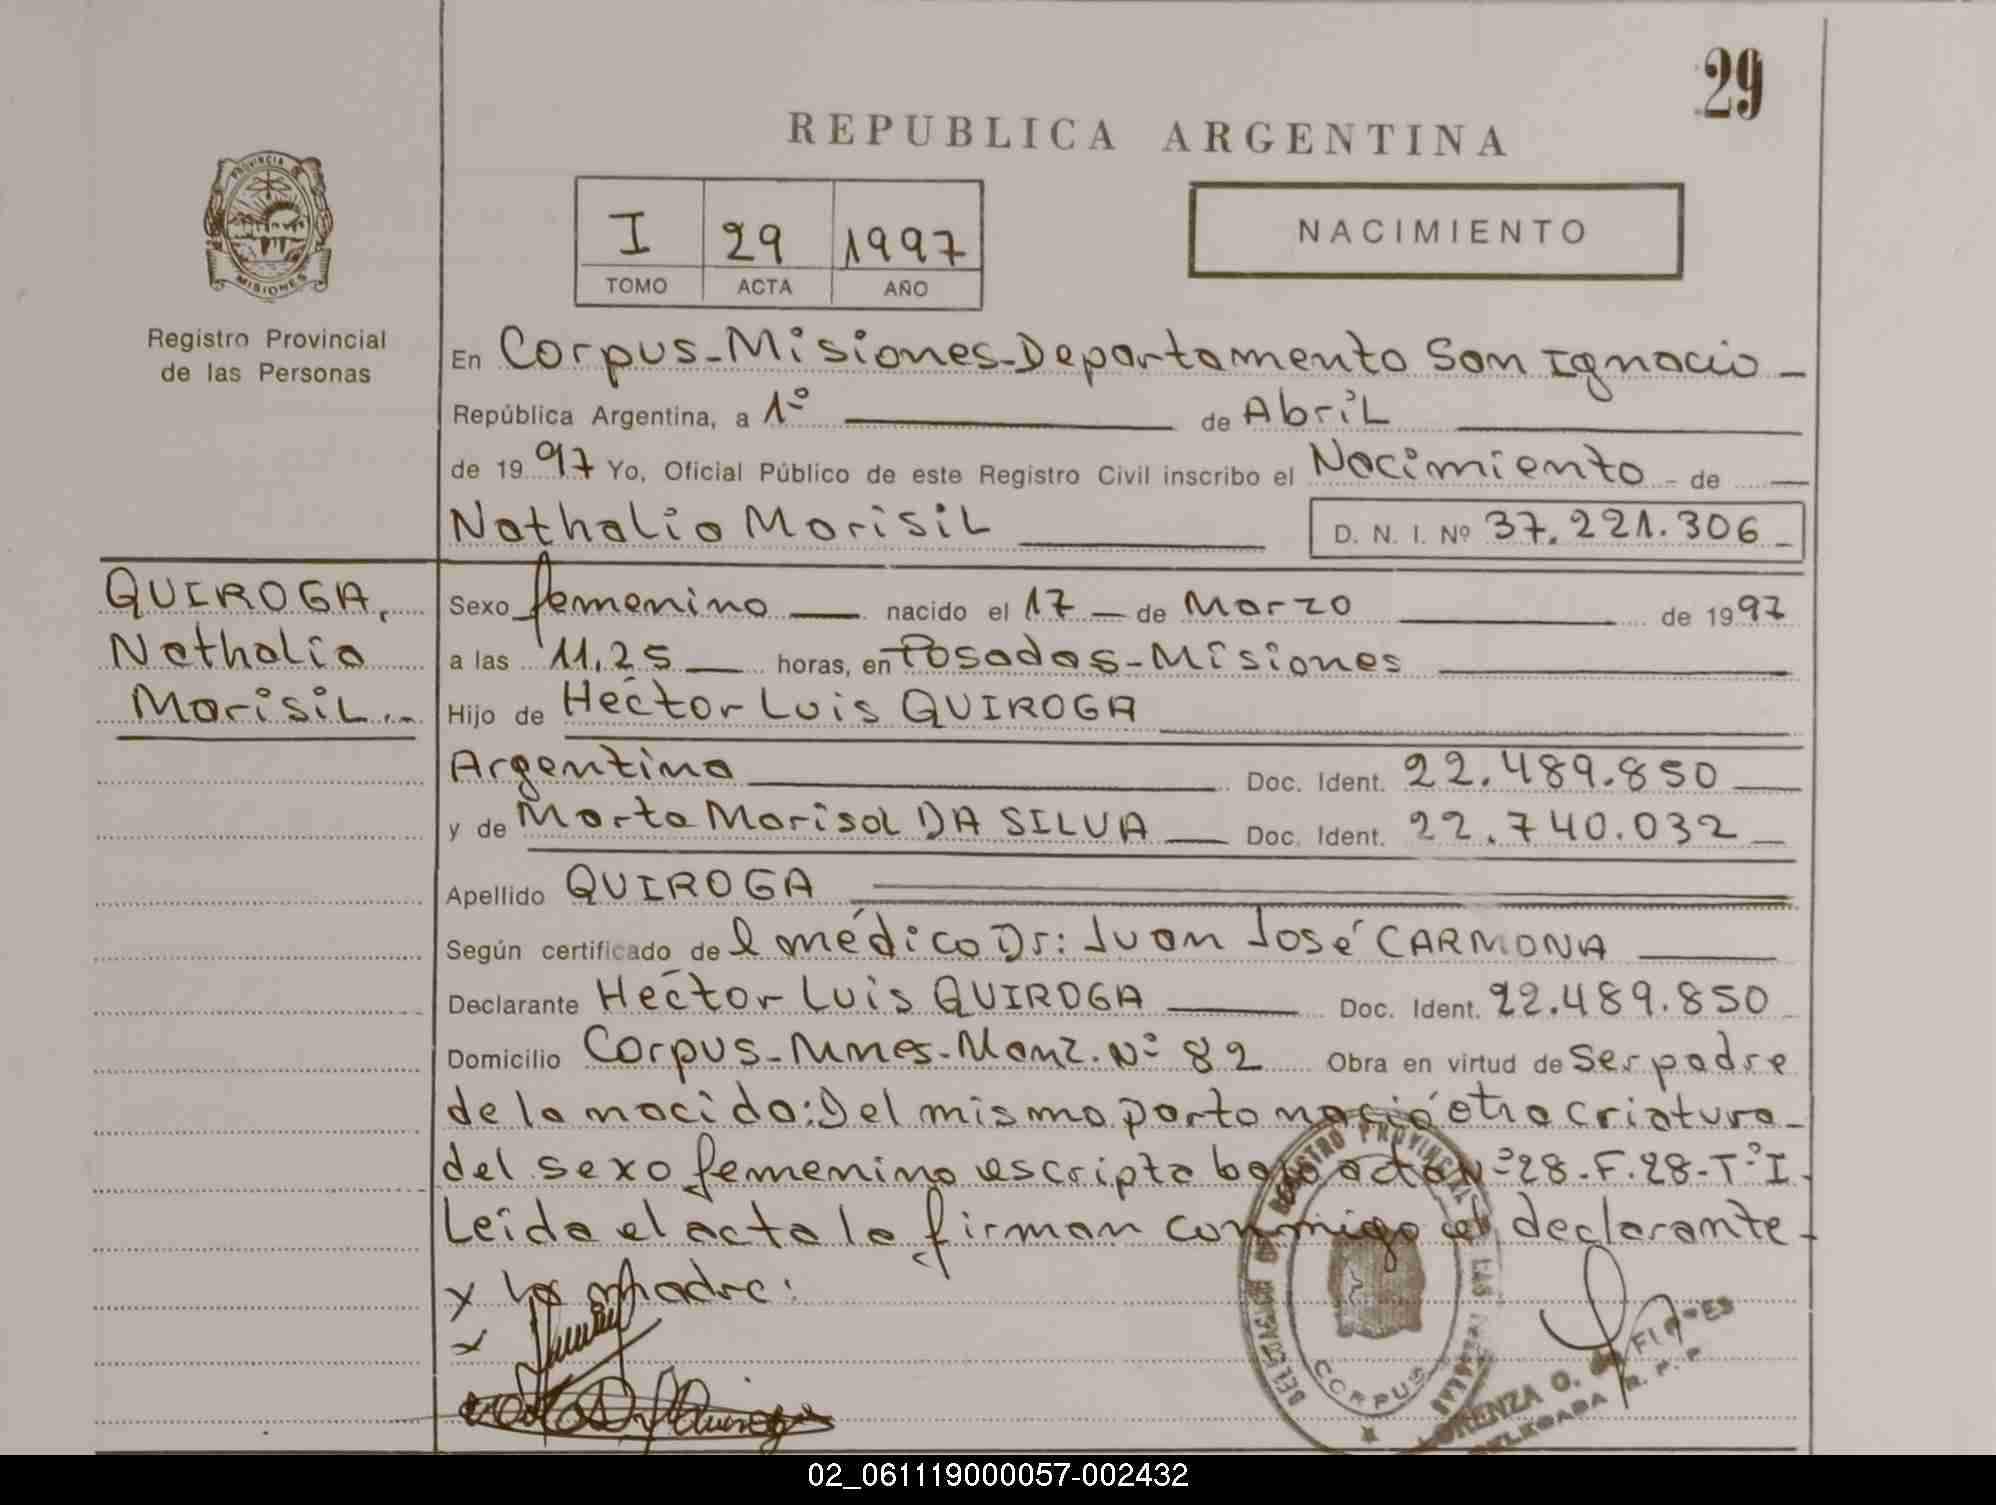 29
REPUBLICA ARGENTINA
PROVINCIA
MISIONES
Registro Provincial
de las Personas
I 29 1997
TOMO ACTA AÑO
NACIMIENTO
En Corpus-Misiones-Departamento San Ignacio-
República Argentina, a 1º de Abril
de 1997 Yo, Oficial Público de este Registro Civil inscribo el Nacimiento - de
Nathalia Marisil D. N. I. Nº 37.221.306
QUIROGA,
Nathalia
Marisil..
Sexo femenino nacido el 17 de Marzo de 1997
a las 11,25 horas, en Posadas-Misiones
Hijo de Héctor Luis QUIROGA
Argentina Doc. Ident. 22.489.850
y de Marta Marisol DA SILVA Doc. Ident. 22.740.032
Apellido QUIROGA
Según certificado de l médico Dr: Juan José CARMONA
Declarante Héctor Luis QUIROGA Doc. Ident. 22.489.850
Domicilio Corpus-Mnes-Manz. Nº 82 Obra en virtud de ser padre
de la nacida: Del mismo parto nació otra criatura-
del sexo femenino escripta bajo acta Nº 28-F.28-Tº I.
Leida el acta la firman conmigo el declarante-
y la madre:
DELEGACION DE REGISTRO PROVINCIAL DE LAS PERSONAS
CORPUS
LORENZA O. de
DELEGADA R. P. P.
02_061119000057-002432